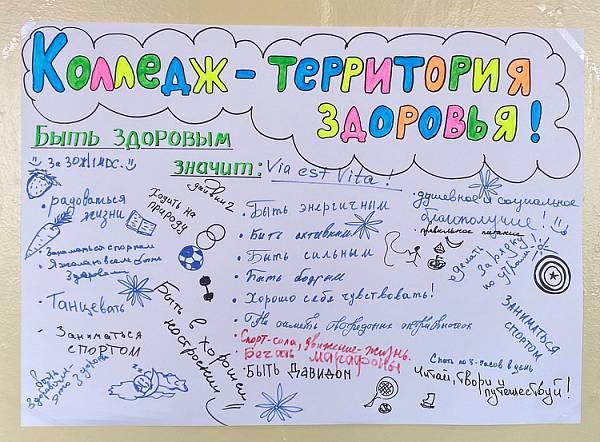 Колледж - территория
здоровья!
Быть здоровым
значит: Via est Vita!
За ЗОЖ!
• радоваться
жизни
Ходить на
природу
дайвинг
• Быть энергичным
• душевное и социальное
благополучие!
• правильное питание
• Быть активным
Заниматься спортом
Я желаю всем быть
здоровыми
• Быть сильным
делать
зарядку
по утрам
• Быть бодрым
• Хорошо себе чувствовать!
• Танцевать
Быть в хорошем
настроении
• Не иметь вредных привычек
Заниматься
спортом
• Заниматься
спортом
Спорт-сила, движение-жизнь.
Бегать марафоны
• Быть Давидом
Спать по 8 часов в день
Читай, твори и
путешествуй!
быть
здоровым
это